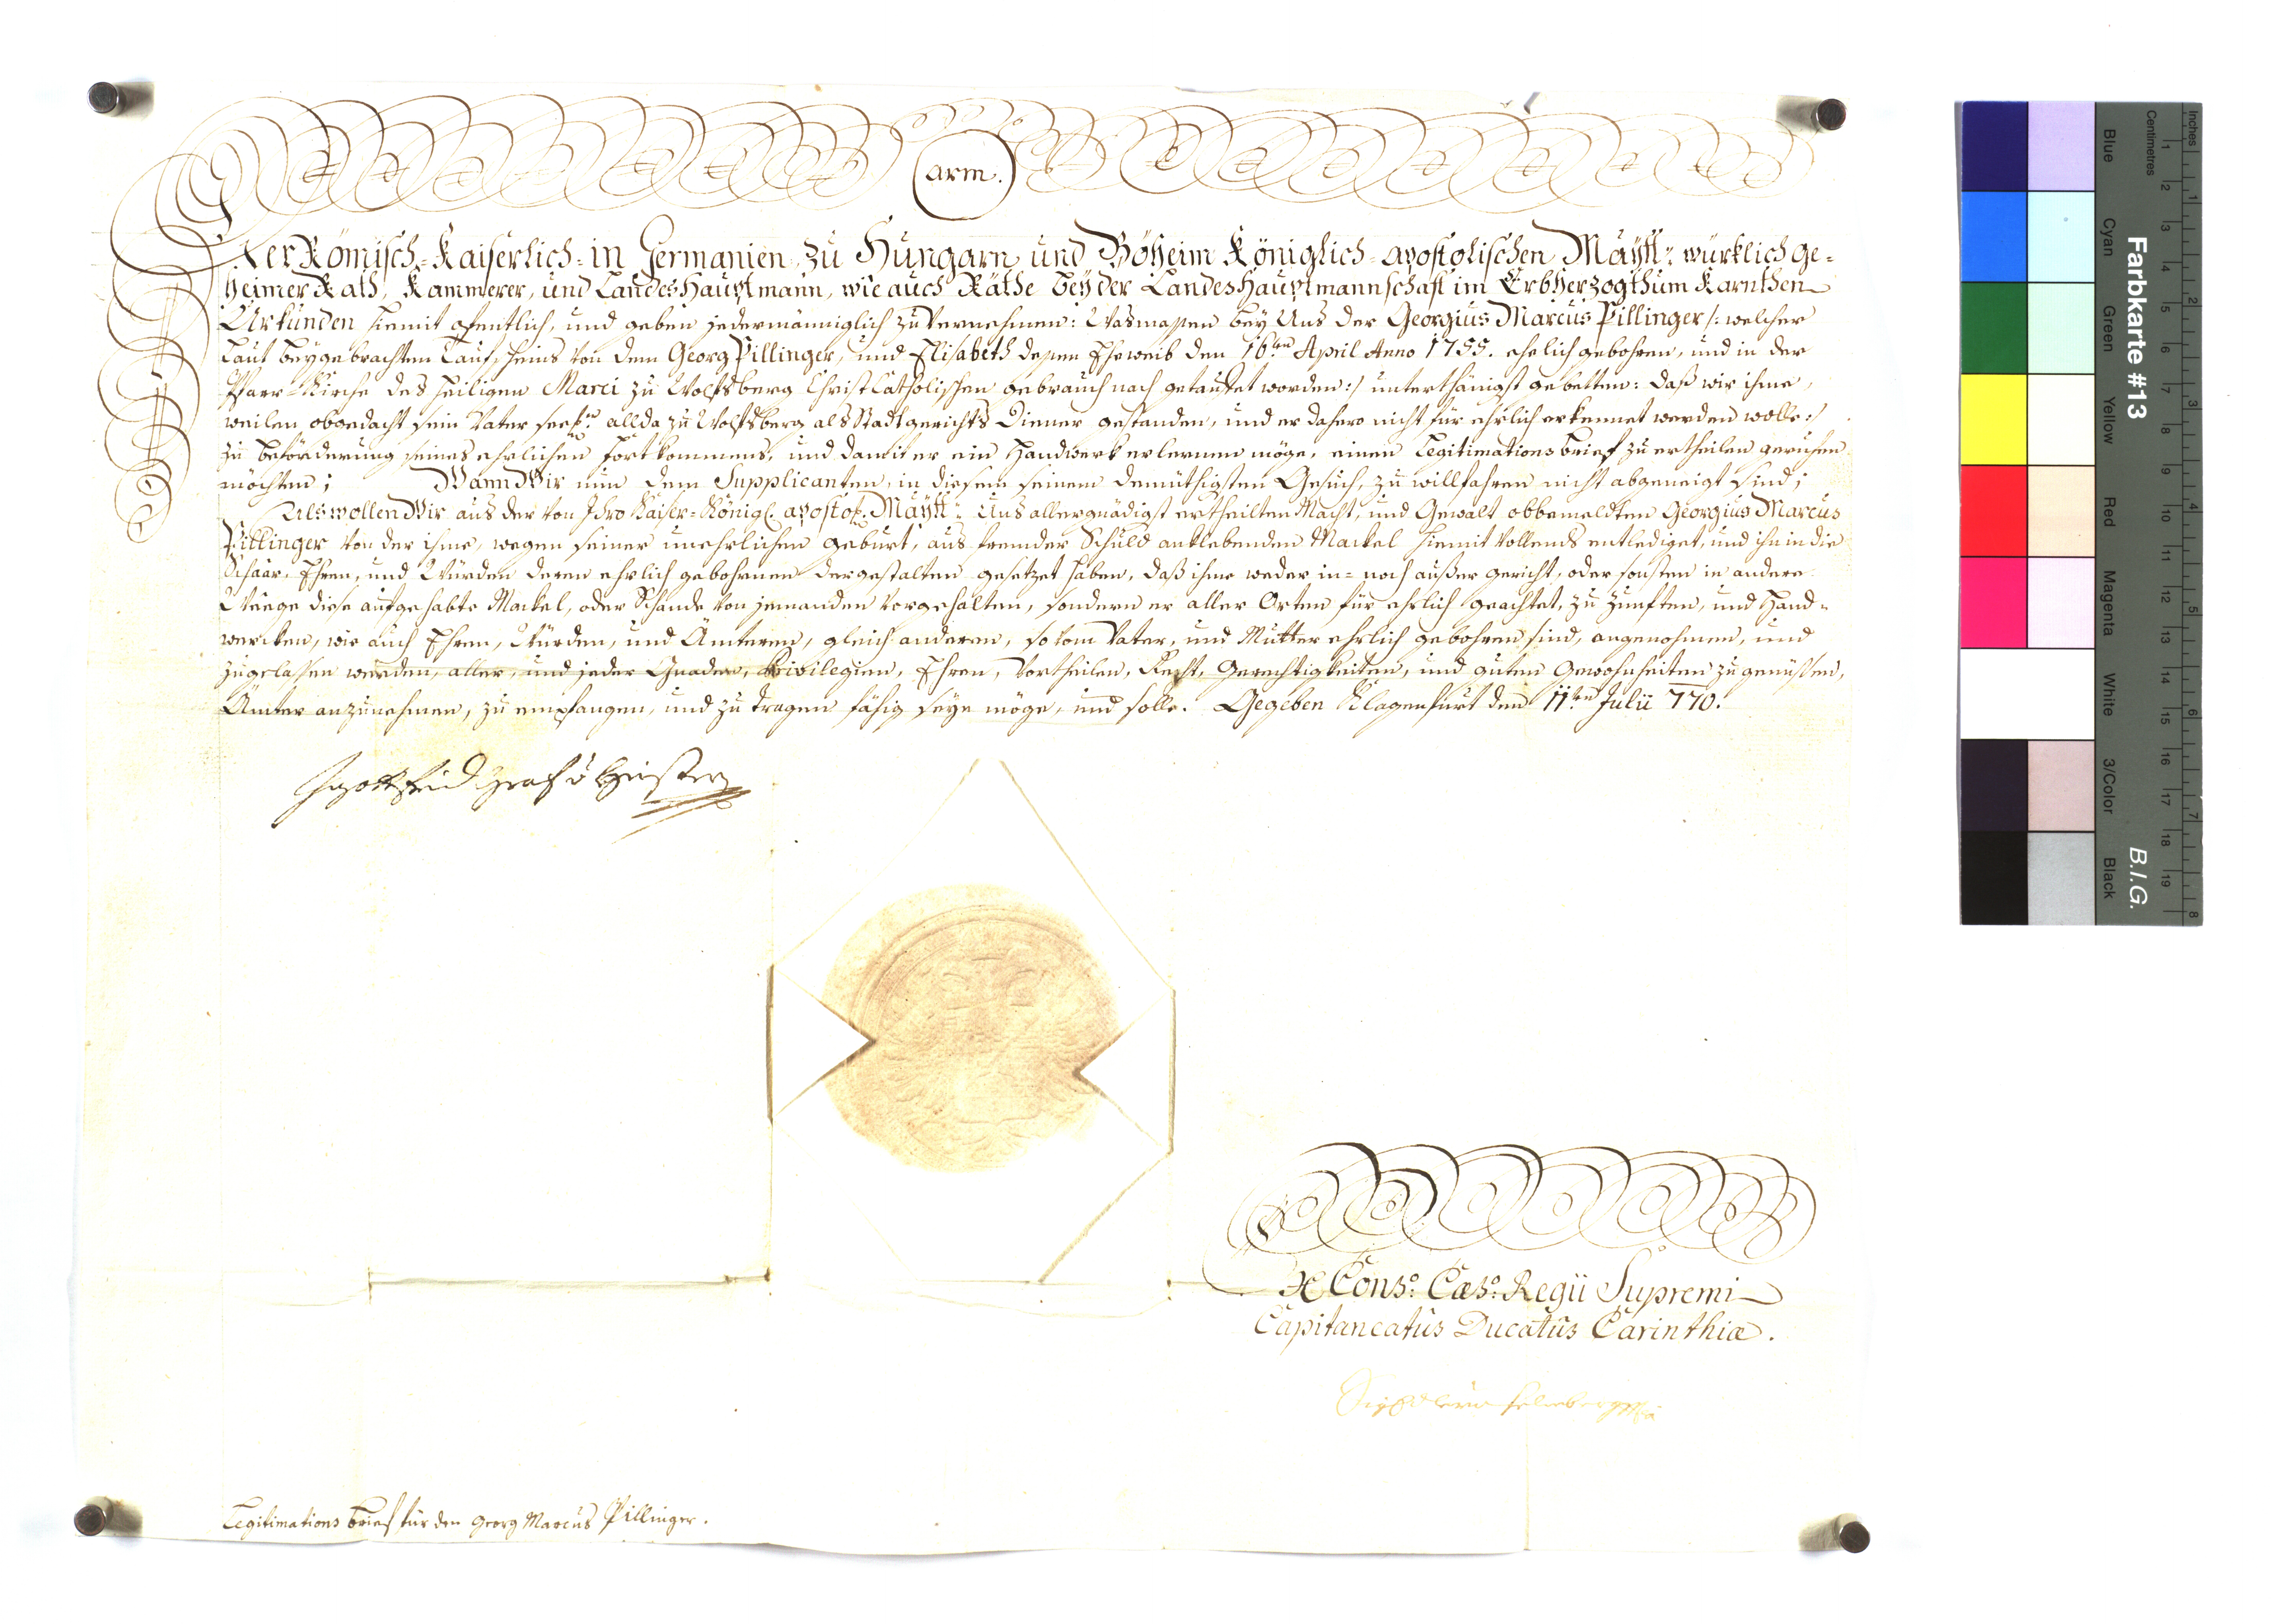 arm.
Der Römisch-Kaiserlich- in Germanien, zu Hungarn, und Böheim Königlich-apostolischen Mayst: würklich ge-
heimer Rath, Kammerer, und Landes Hauptmann, wie auch Räthe bey der Landes Hauptmannschaft im Erbherzogthum Karnthen
Urkunden hiemit ofentlich, und geben jedermänniglich zu vernehmen: Wasmassen bey Uns der Georgius Marcus Pillinger /: welcher
laut beygebrachten Taufscheins von dem Georg Pillinger, und Elisabeth dessen Eheweib den 16ten April Anno 1755. ehelich gebohren, und in der
Pfarr-Kirche des Heiligen Marci zu Wolfsberg Christ Catholischen gebrauch nach getauffet worden :/ unterthänigst gebetten: daß wir ihme,
weilen obgedacht sein Vater seel: allda zu Wolfsberg als Stadtgerichts Diener gestanden, und er dahero nicht für ehrlich erkennet werden wolle :/
zu beförderung seines ehrlichen fortkommens, und damit er ein Handwerk erlernen möge, einen Legitimations brief zu ertheilen geruhen
möchten; Wann Wir nun dem Supplicanten, in diesem seinem demüthigsten Gesuch, zu willfahren nicht abgeneigt sind;
Als wollen Wir aus der von Ihro Kaiser-Königl. apostol. Mayst: Uns allergnädigst ertheilten Macht, und Gewalt obbemeldten Georgius Marcus
Pillinger von der ihme, wegen seiner unehrlichen geburt, aus fremder Schuld anklebenden Mackel hiemit vollends entlediget, und ihn in die
Schaar, Ehren, und Würden deren ehrlich gebohrnen dergestalten gesetzet haben, daß ihme weder in- noch außer gericht, oder sonsten in andere
Weege diese aufgehabte Mackel, oder Schande von jemanden vorgehalten, sondern er aller Orten für ehrlich geachtet, zu Zünften, und Hand-
wercken, wie auch Ehren, Würden, und Ämteren, gleich anderen, so vom Vater, und Mutter ehrlich gebohren sind, angenohmen, und
zugelassen werden, aller, und jeder Gnaden, Privilegien, Ehren, Vortheilen, Recht, Gerechtigkeiten, und guten Gewohnheiten zu genüssen,
Ämter anzunehmen, zu empfangen, und zu tragen fähig seyn möge, und solle. Gegeben Klagenfurt den 11ten Julii 770.
Gottfrid Graf v Heister
Ex Cons: Cæs: Regii Supremi
Capitaneatus Ducatus Carinthiæ.
Legitimations brief für den Georg Marcus Pillinger.
Farbkarte #13
B.I.G.
Inches
Centimetres
1 2 3 4 5 6 7 8 9 10 11 12 13 14 15 16 17 18 19
1 2 3 4 5 6 7 8
Blue Cyan Green Yellow Red Magenta White 3/Color Black